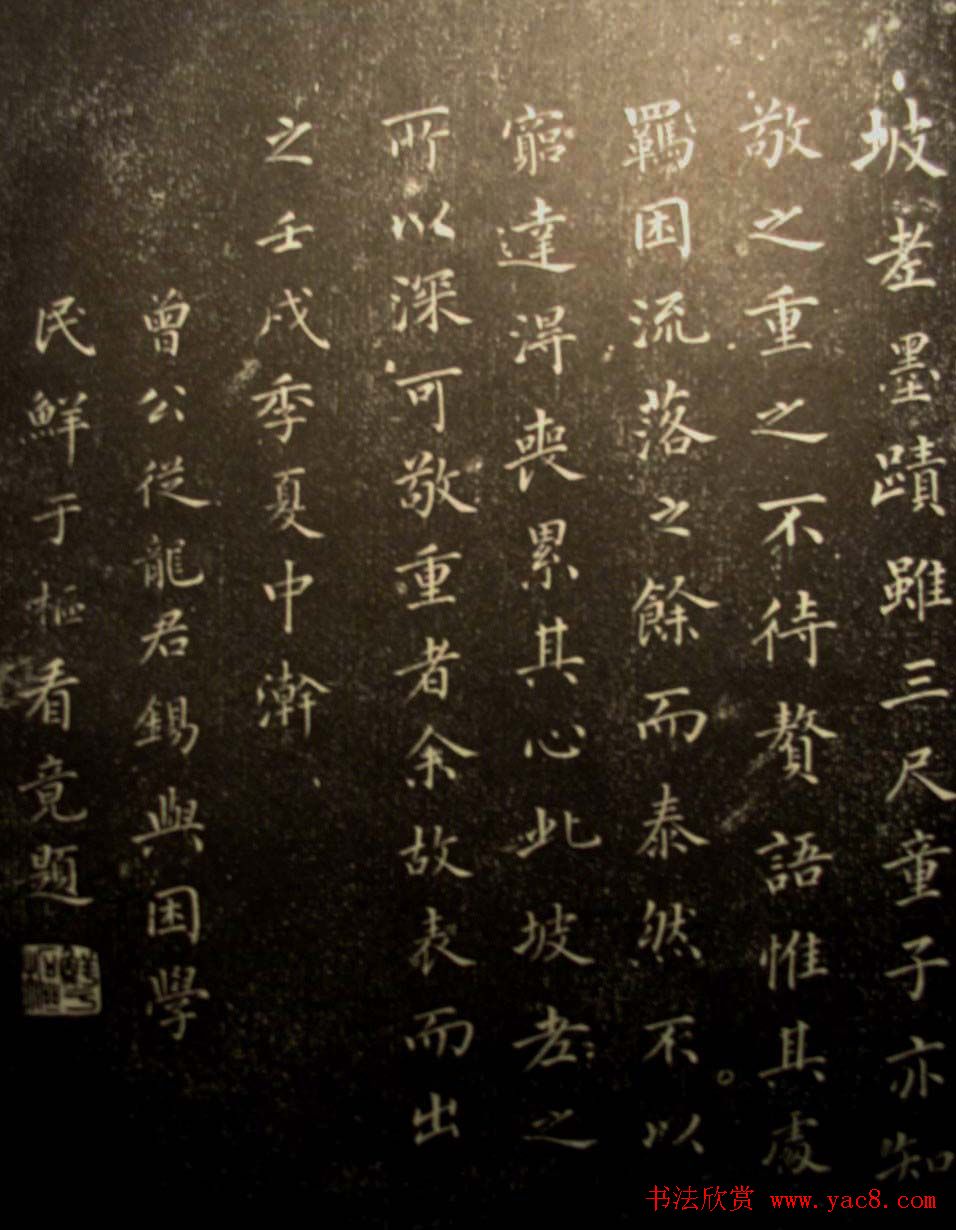 坡老墨蹟雖三尺童子亦知
敬之重之不待贅語惟其處
羈困流落之餘而泰然不以
窮達得喪累其心此坡老之
所以深可敬重者余故表而出
之壬戌季夏中澣
曾公從龍君錫與困學
民鮮于樞看竟題
书法欣赏 www.yac8.com